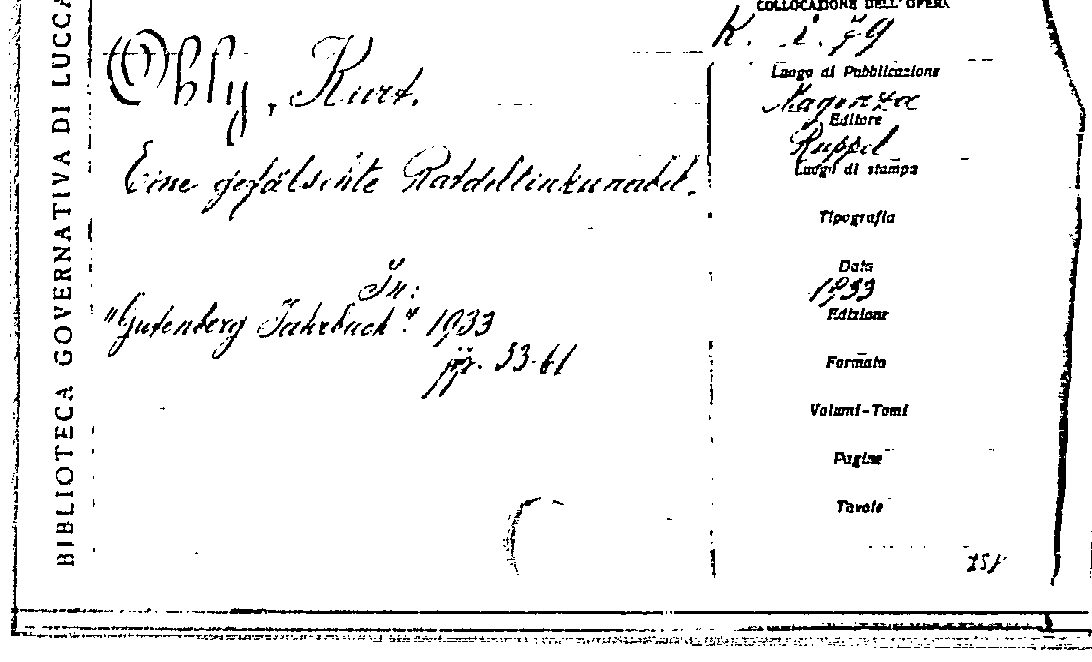 BIBLIOTECA GOVERNATIVA DI LUCCA
COLLOCAZIONE DELL'OPERA
K. i. 79
Ohly, Kurt.
Eine gefälschte Ratdoltinkunabel.
In:
"Gutenberg Jahrbuch" 1933
pp. 53-61
Luogo di Pubblicazione
Magonza
Editore
Ruppel
Luogo di stampa
Tipografia
Data
1933
Edizione
Formato
Volumi-Tomi
Pagine
Tavole